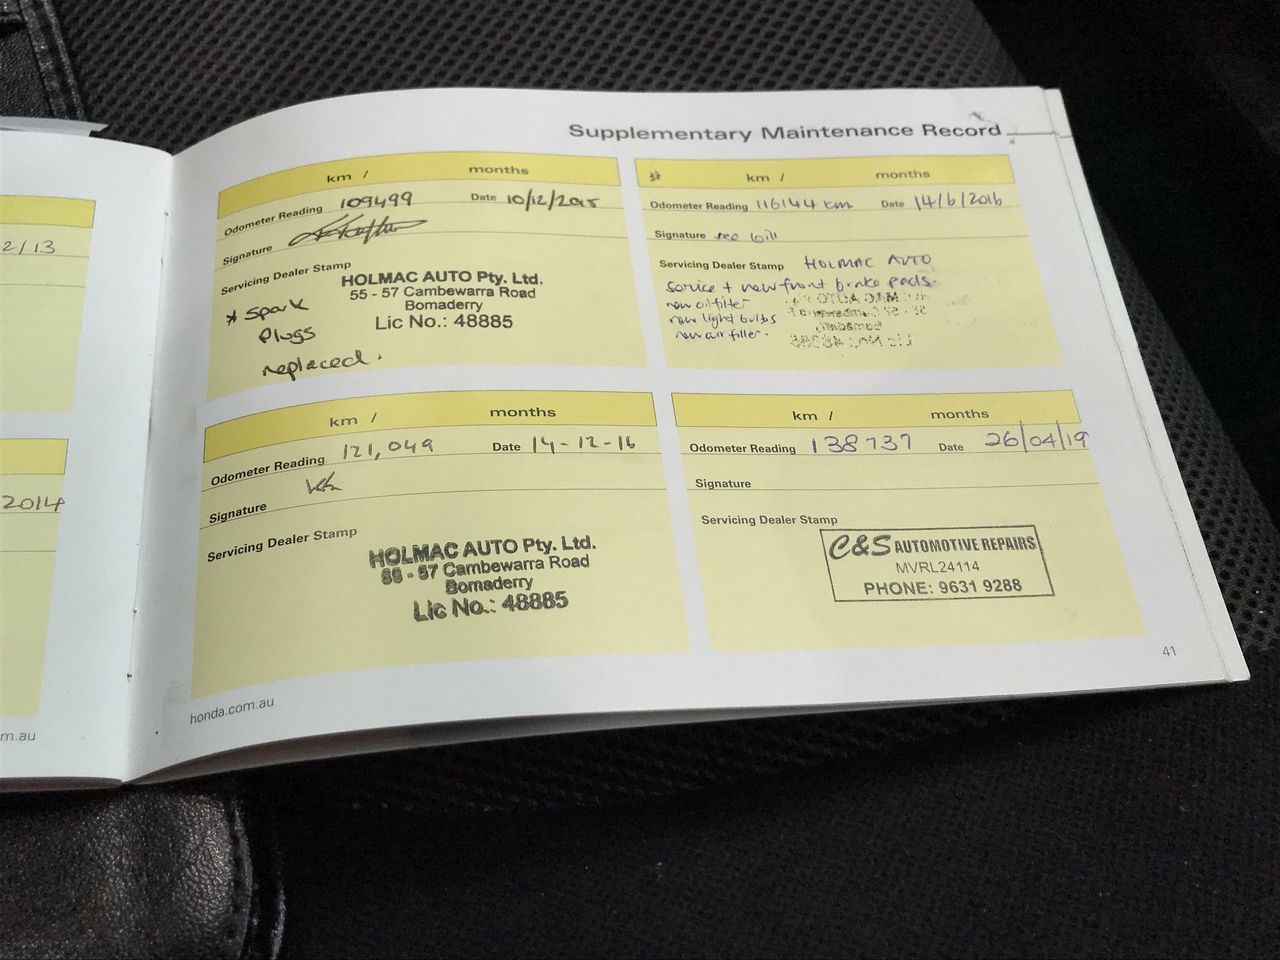 2/13
2014
m.au
Supplementary Maintenance Record
km / months
Odometer Reading 109499 Date 10/12/2015
Signature
Servicing Dealer Stamp
HOLMAC AUTO Pty. Ltd.
55 - 57 Cambewarra Road
Bomaderry
Lic No.: 48885
* Spark
Plugs
replaced.
* km / months
Odometer Reading 116144 km Date 14/6/2016
Signature see bill
Servicing Dealer Stamp HOLMAC AUTO
service + new front brake pads.
new oil filter
new light bulbs
new air filter.
km / months
Odometer Reading 121,049 Date 14-12-16
Signature
Servicing Dealer Stamp
HOLMAC AUTO Pty. Ltd.
55 - 57 Cambewarra Road
Bomaderry
Lic No.: 48885
km / months
Odometer Reading 138737 Date 26/04/19
Signature
Servicing Dealer Stamp
C&S AUTOMOTIVE REPAIRS
MVRL24114
PHONE: 9631 9288
honda.com.au
41